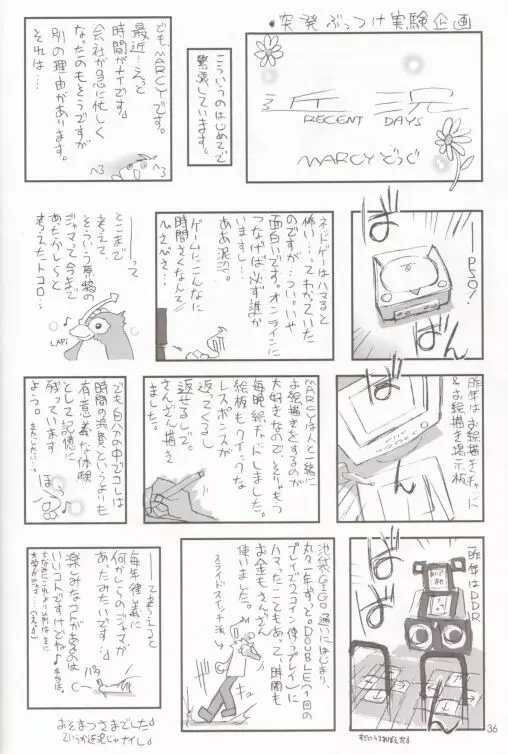 ・突発ぶっつけ実験企画
近況
RECENT DAYS
MARCYどうぐ
こういうのはじめてで
緊張しています。
ども MARCYです。
最近…えっと
時間がナイです。
会社が急に忙しく
なったのもそうですが
別の理由があります。
それは…
――PSO!
ばばん
ネットゲーはハマると
怖い…ってわかっていた
のですが…つい。いや
面白いです。オンラインに
つなげば必ず誰か
いますし…
ああ泥沼。
ゲームにこんなに
時間さくなんて
――って
とこまで
考えて
そういう原稿の
ジャマって今まで
あったかしらと
考えたトコロ…
LAPi ♪
昨年は お絵描きチャット
&お絵描き掲示板
ばん
MARCYは人と一緒に
お絵描きをするのが
大好きなので、そりゃもう
毎晩絵チャットしました。
絵板もクイックな
レスポンスが
返ってくるし
返せるしで。
さんざん描き
ました。
でも自分の中でコレは
時間の浪費というよりも
有意義な体験
として記憶に
残っています
よう。
またしたい…。
昨年はDDR
ばばん
池袋GiGO通いにはじまり、
丸々1年ずっと。DOUBLE(1回の
プレイで2コイン使うプレイ)に
ハマったこともあって時間も
お金もさんざん
使いました。
スライドスイッチ派
――って考えると
毎年律義に
何かしらのジャマが
あったみたいです…。
楽しみなコトがあるのは
いいコトですけどね♪
おそまつさまでした♪
36